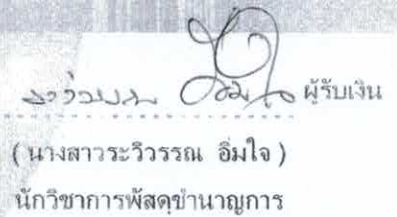 ผู้รับเงิน
(นางสาวระวิวรรณ อิ่มใจ)
นักวิชาการพัสดุชำนาญการ